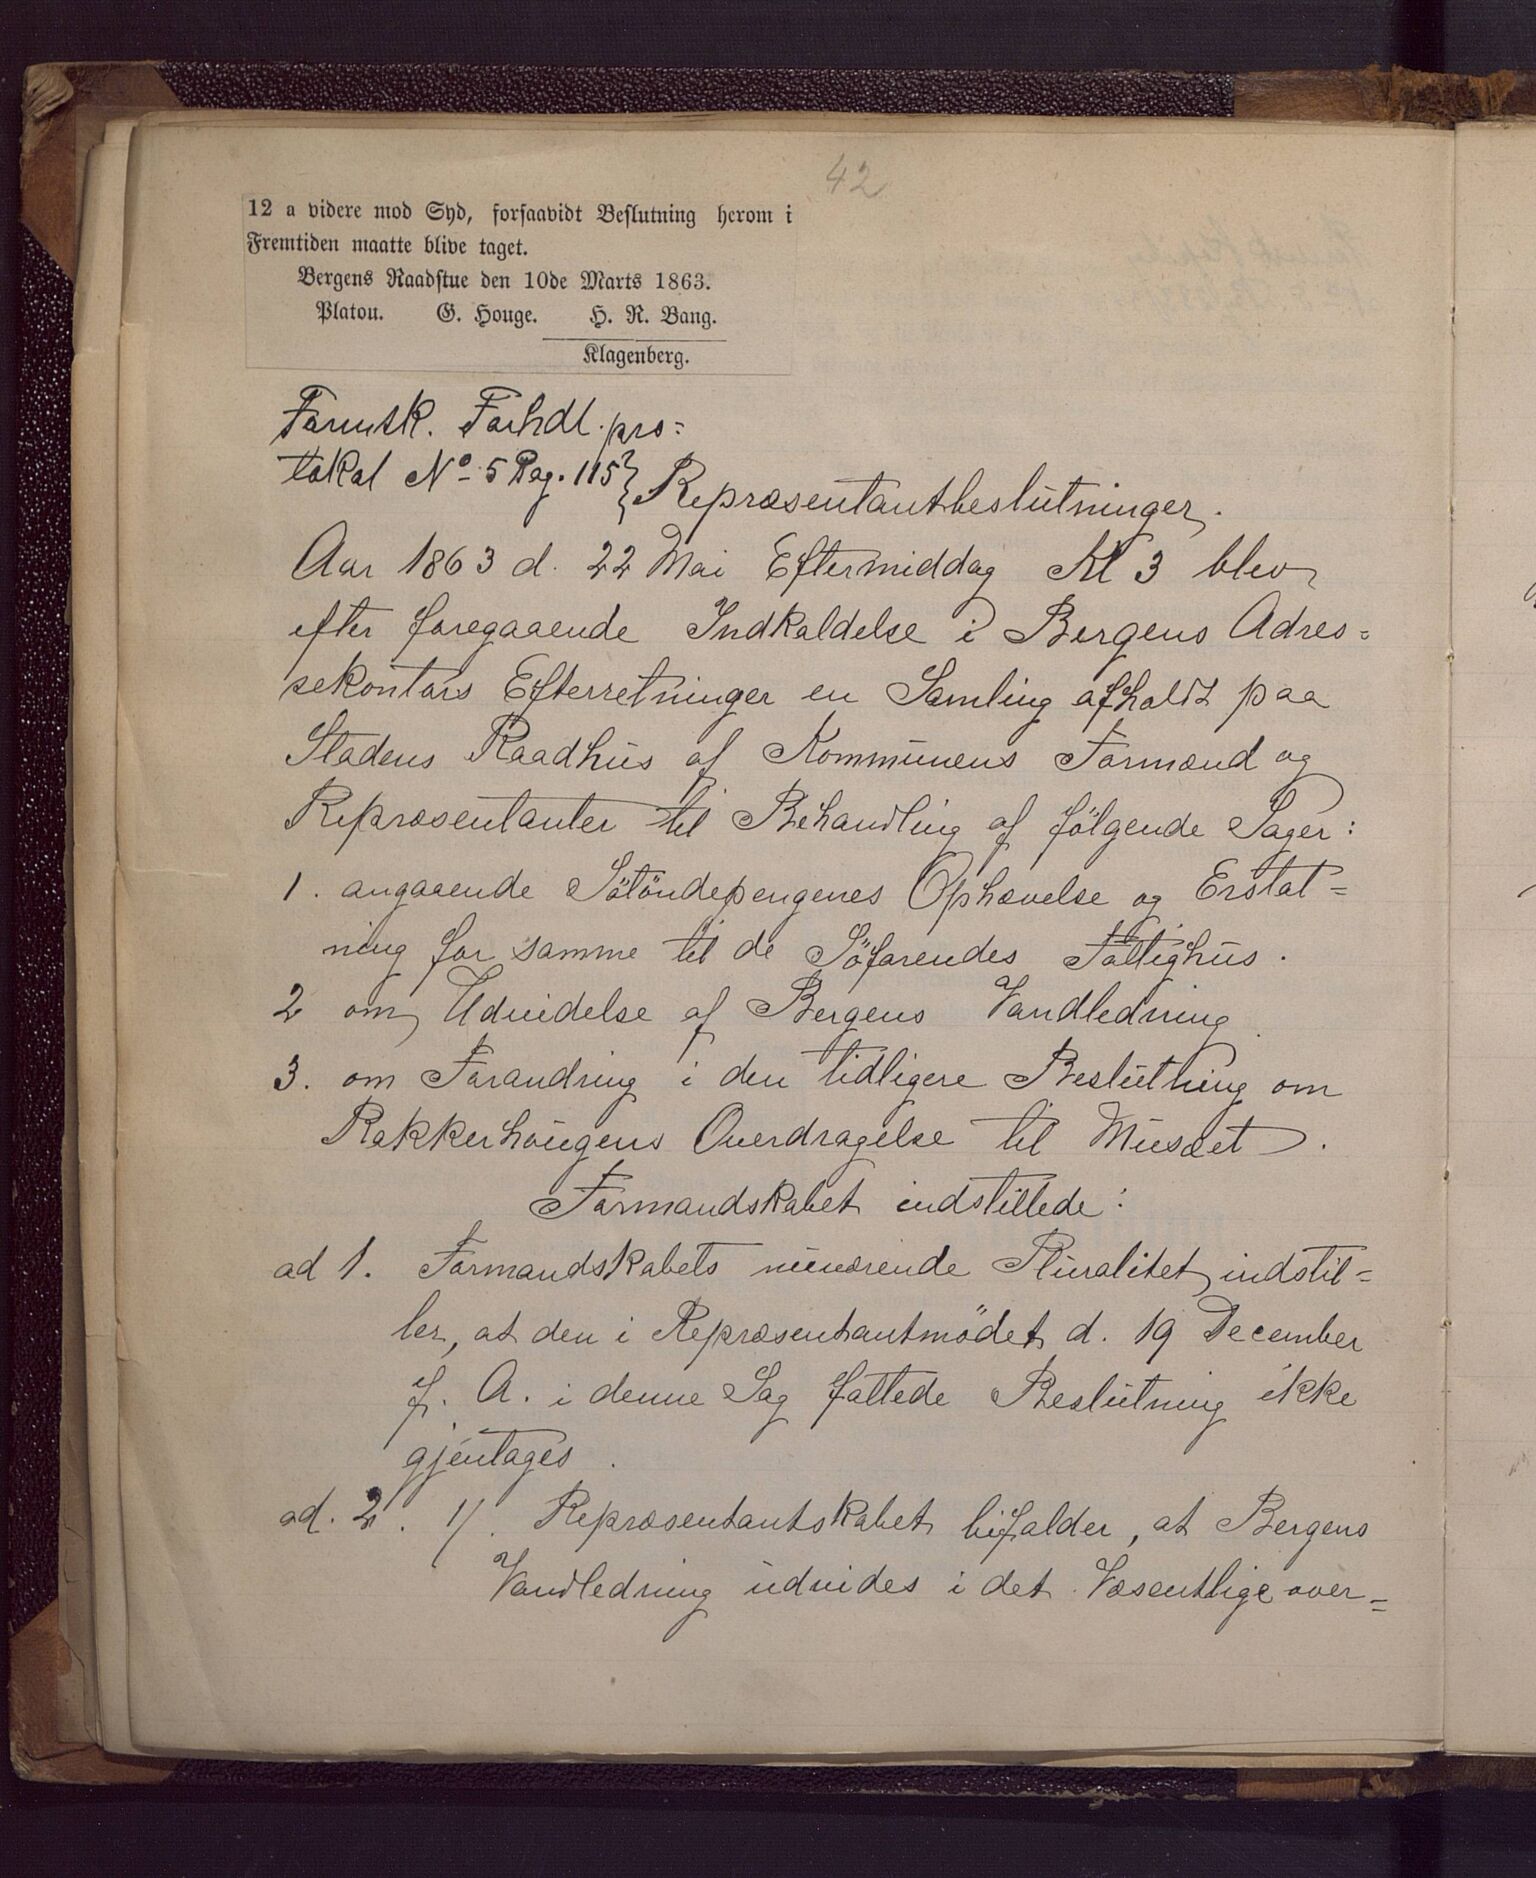 42
12 a videre mod Syd, forsaavidt Beslutning herom i
Fremtiden maatte blive taget.
Bergens Raadstue den 10de Marts 1863.
Platou. G. Houge. H. R. Bang.
Klagenberg.
Formsk. Forhdl. pro=
tokol No 5 Pag. 115} Repræsentantbeslutninger.
Aar 1863 d. 22 Mai Eftermiddag Kl 3 blev
efter foregaaende Indkaldelse i Bergens Adres=
sekontors Efterretninger en Samling afholdt paa
Stadens Raadhus af Kommunens Formænd og
Repræsentanter til Behandling af følgende Sager:
1. angaaende Søtøndepengenes Ophævelse og Erstat=
ning for samme til de Søfarendes Fattighus.
2 om Udvidelse af Bergens Vandledning
3. om Forandring i den tidligere Beslutning om
Rakkerhougens Overdragelse til Musæet.
Formandskabet indstillede:
ad 1. Formandskabets nuværende Pluralitet indstil=
ler, at den i Repræsentantmødet d. 19 December
f. A. i denne Sag fattede Beslutning ikke
gjentages.
ad. 2. 1/. Repræsentantskabet bifalder, at Bergens
Vandledning udvides i det Væsentlige over=